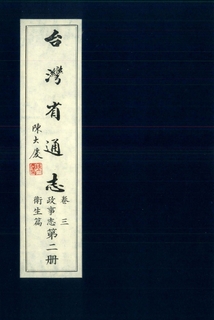 台灣省通志
陳大慶
卷三
政事志
衛生篇
第二册